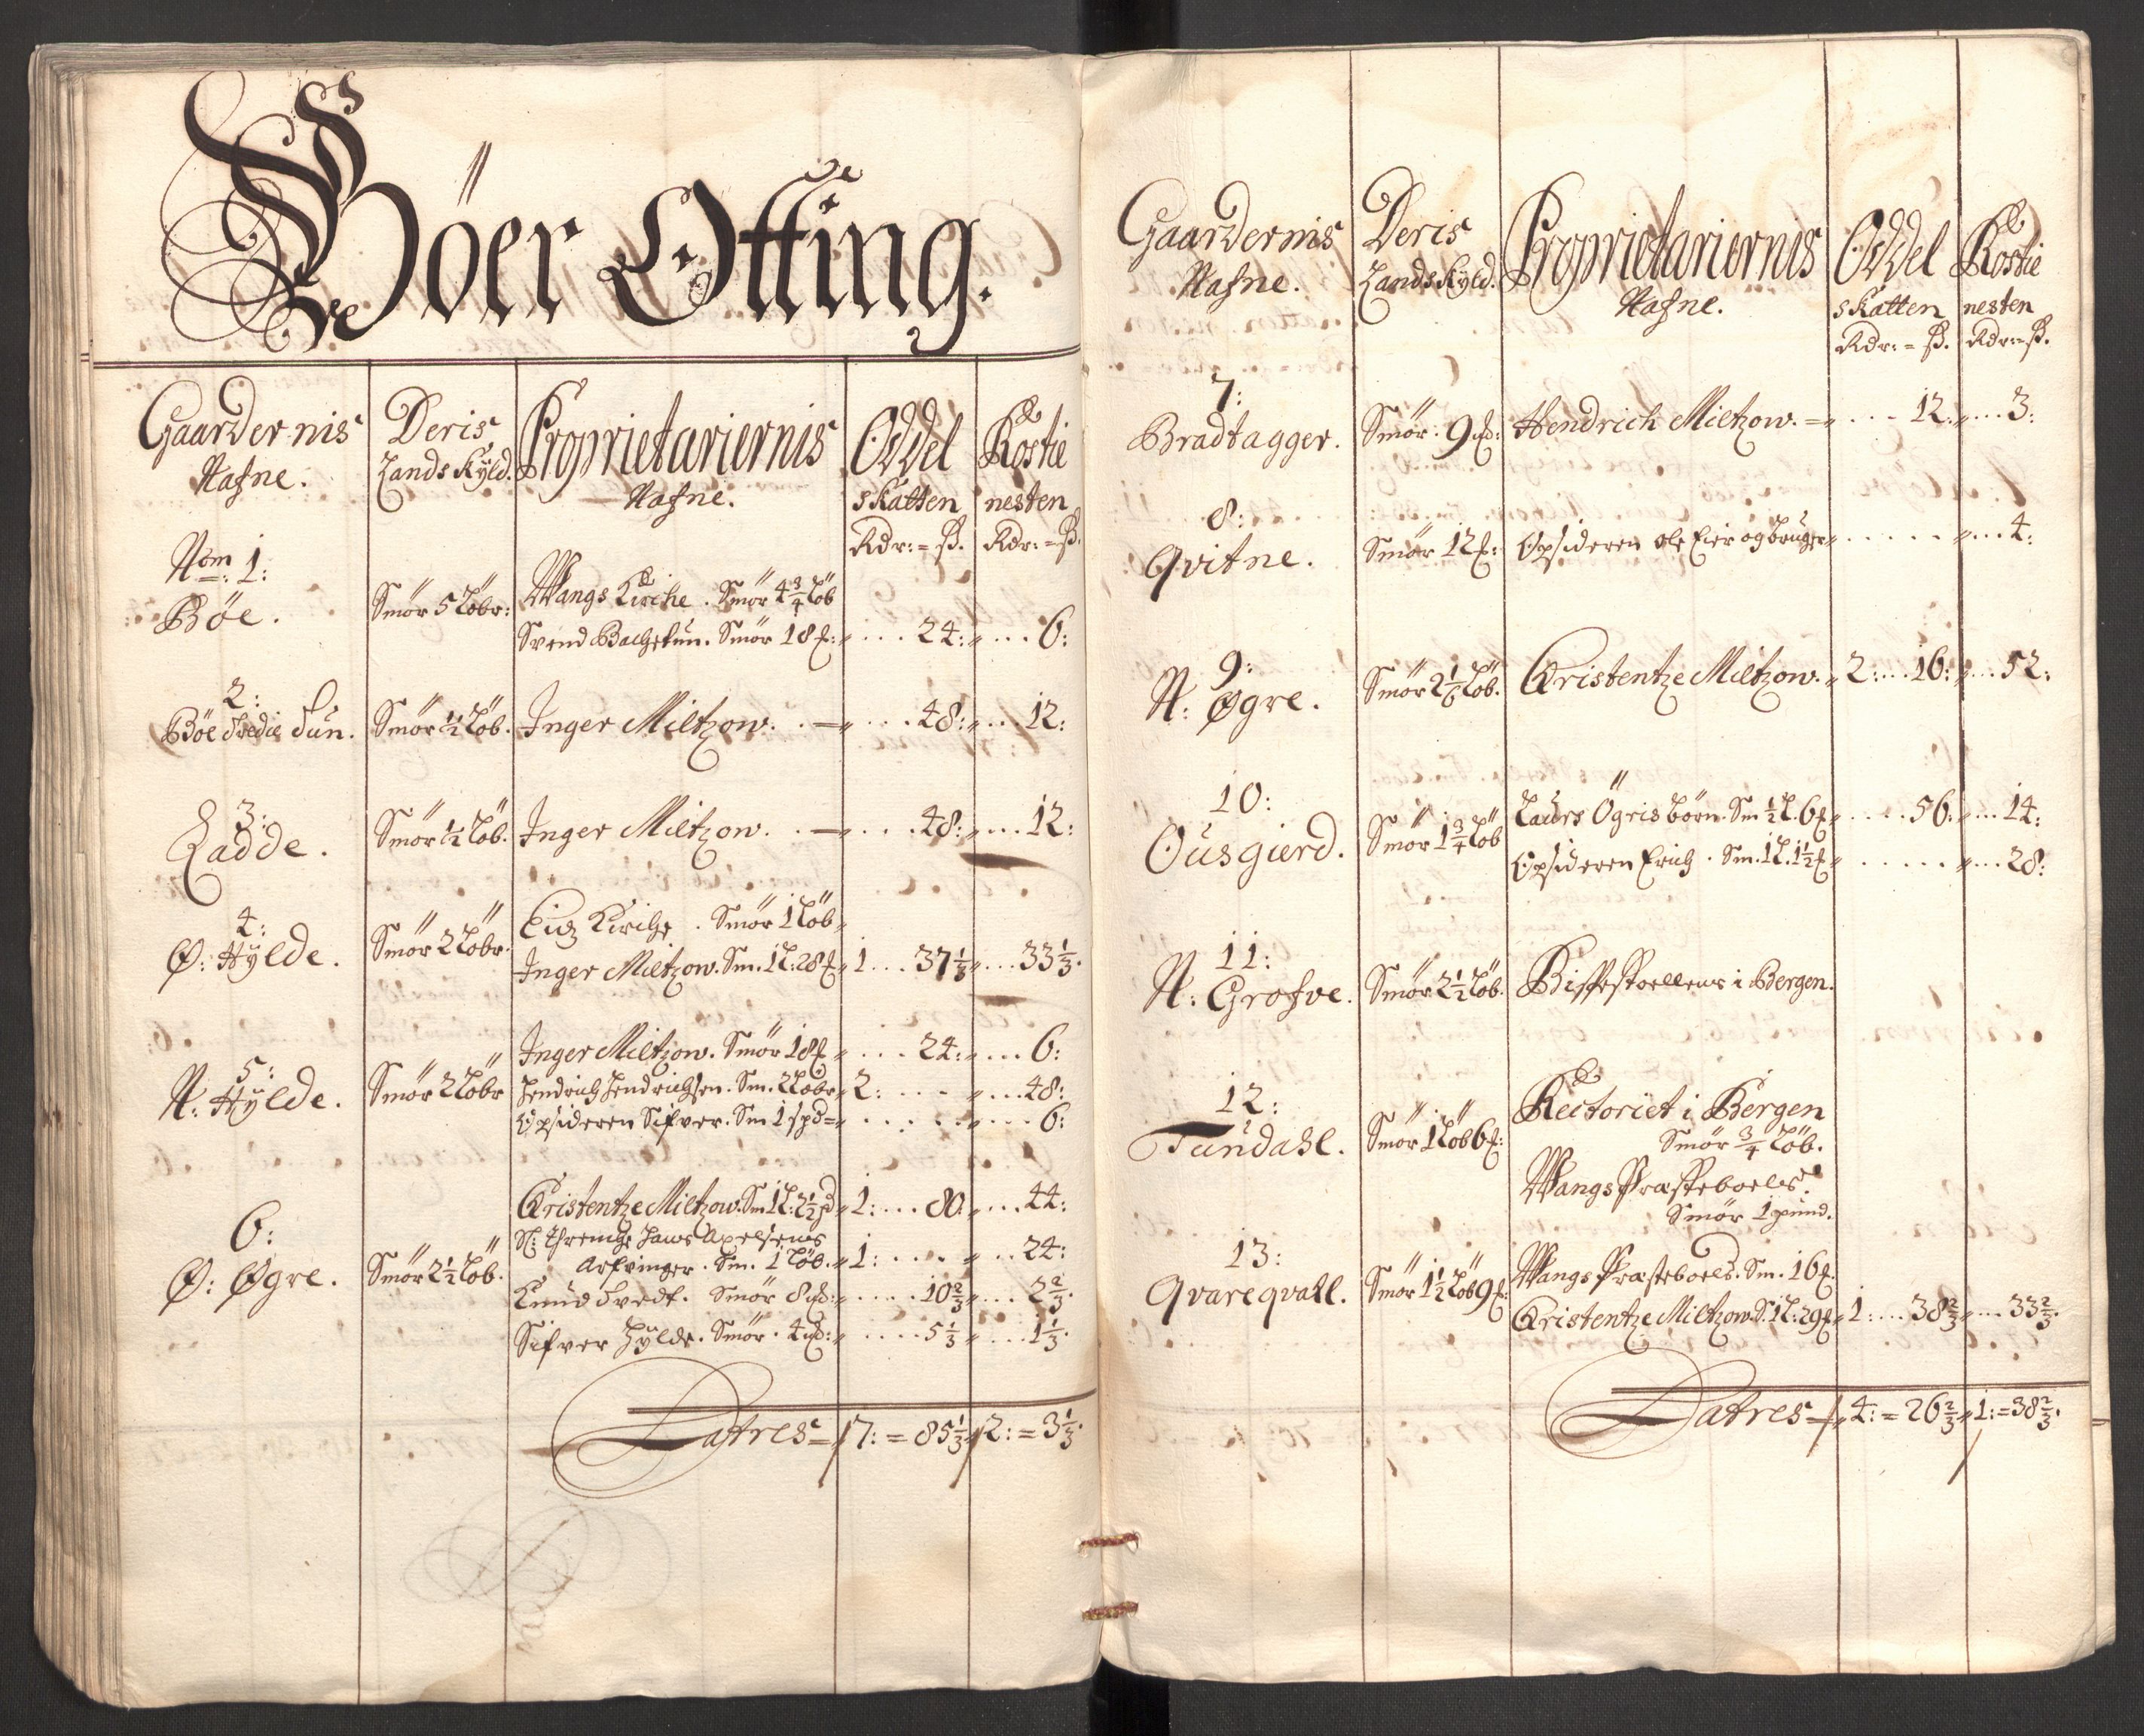 Böer Otting.
Gaardernis Nafne. Deris Landskyld. Proprietariernis Nafne. Oddel skatten Rdr: = ß. Rostie nesten Rdr: = ß.
Nom 1:
Böe. Smör 5 Löbr: Wangs Kirche. Smör 4 3/4 Löb
Svend Smör 18 24: 6:
2:
Böe Tun. Smör 1/2 Löb. Inger Miltzow. 48: 12:
3:
Ladde. Smör 1/2 Löb. Inger Miltzow. 48: 12:
4:
Ø: Hÿlde. Smör 2 Löbr. Kirche. Smör 1 Löb
Inger Miltzow. Sm. 1 L: 28 1 37 1/3 33 1/3.
5:
N: Hÿlde. Smör 2 Löbr Inger Miltzow. Smör 18 24: 6:
Hendrich Hendrichsen. Sm. 2 Löbr 2: 48:
Opsideren Sifver. Sm 1 spd 6:
6:
Ø: Øgre. Smör 2 1/2 Löb. Cristentze Miltzow. Sm 1 L: 2 1/2 1: 80. 44:
Sl: Hans Axelsens
Arfvinger. Sm. 1 Löb. 1: 24:
Knud Tvedt. Smör 8 10 2/3 2 2/3.
Sifver Hÿlde. Smör. 4 5 1/3 1 1/3.
Latres 7: = 85 1/3 2: = 3 1/3.
Gaardernis Nafne. Deris Landskyld. Proprietariernis Nafne. Oddel skatten Rdr: = ß. Rostie nesten Rdr: = ß.
7:
Bradtagger. Smör. 9 Hendrich Miltzow. 12: 3:
8:
Qvitne. Smör 12 Opsideren ole Eier og bruger 4:
9:
N: Øgre. Smör 2 1/6 Löb. Cristentze Miltzow. 2: 16: 52:
10:
Ousgierd. Smör 1 3/4 Löb Laurs Ögris börn. Sm 1/2 L. 6 56: 14:
Opsideren Erich. Sm. 1 L. 1 1/2 28:
11:
N: Grofve. Smör 2 1/2 Löb. Bispestoellens i Bergen.
12:
Tundahl. Smör 1 Löb 6 Rectoriet i Bergen
Smör 3/4 Löb.
Wangs Præsteboels.
Smör 1 pund.
13:
Qvareqvall. Smör 1 1/2 Löb 9 Wangs Præsteboels. Sm. 16
Cristentze Miltzow. S. 1 L: 29 1: 38 2/3 33 2/3.
Latres 4: = 26 2/3 1: = 38 2/3.